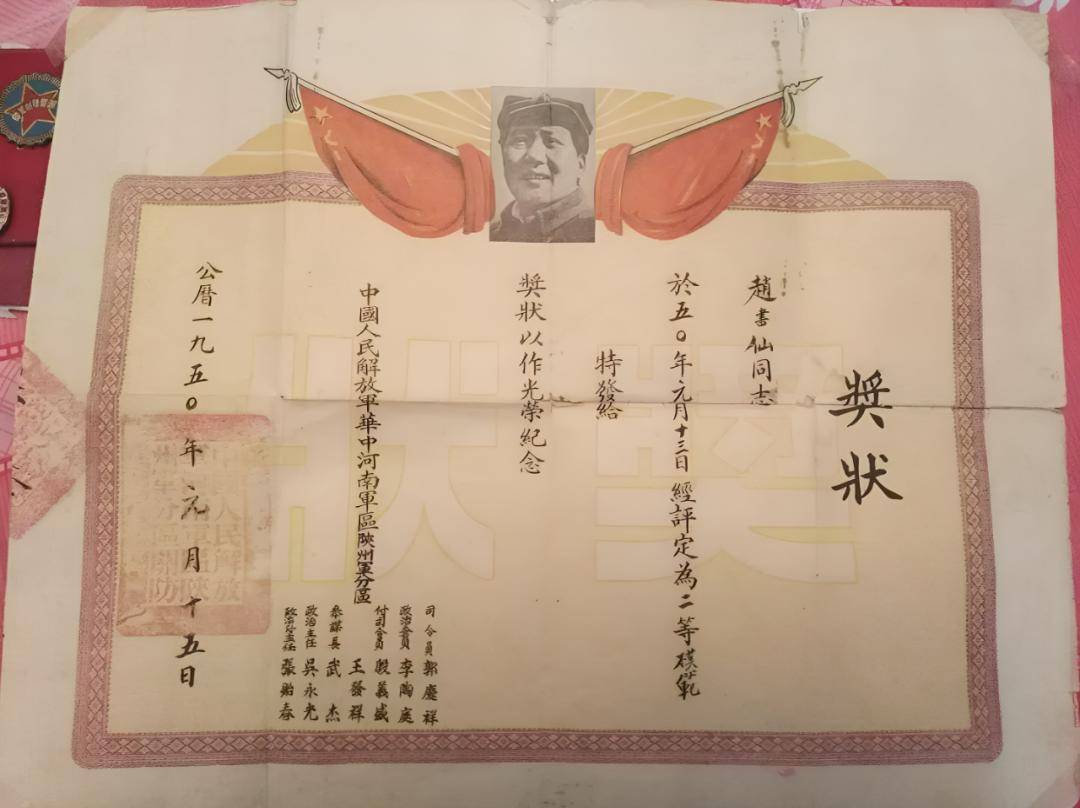 獎狀
趙書仙同志
於五〇年元月十三日經評定為二等模範
特發給
獎狀以作光榮紀念
中國人民解放軍華中河南軍區陝州軍分區
司令員 郭慶祥
政治委員 李陶庚
付司令員 殷義盛
王發祥
參謀長 武杰
政治主任 吳永光
政治付主任 張貽春
公曆一九五〇年元月十五日
獎狀